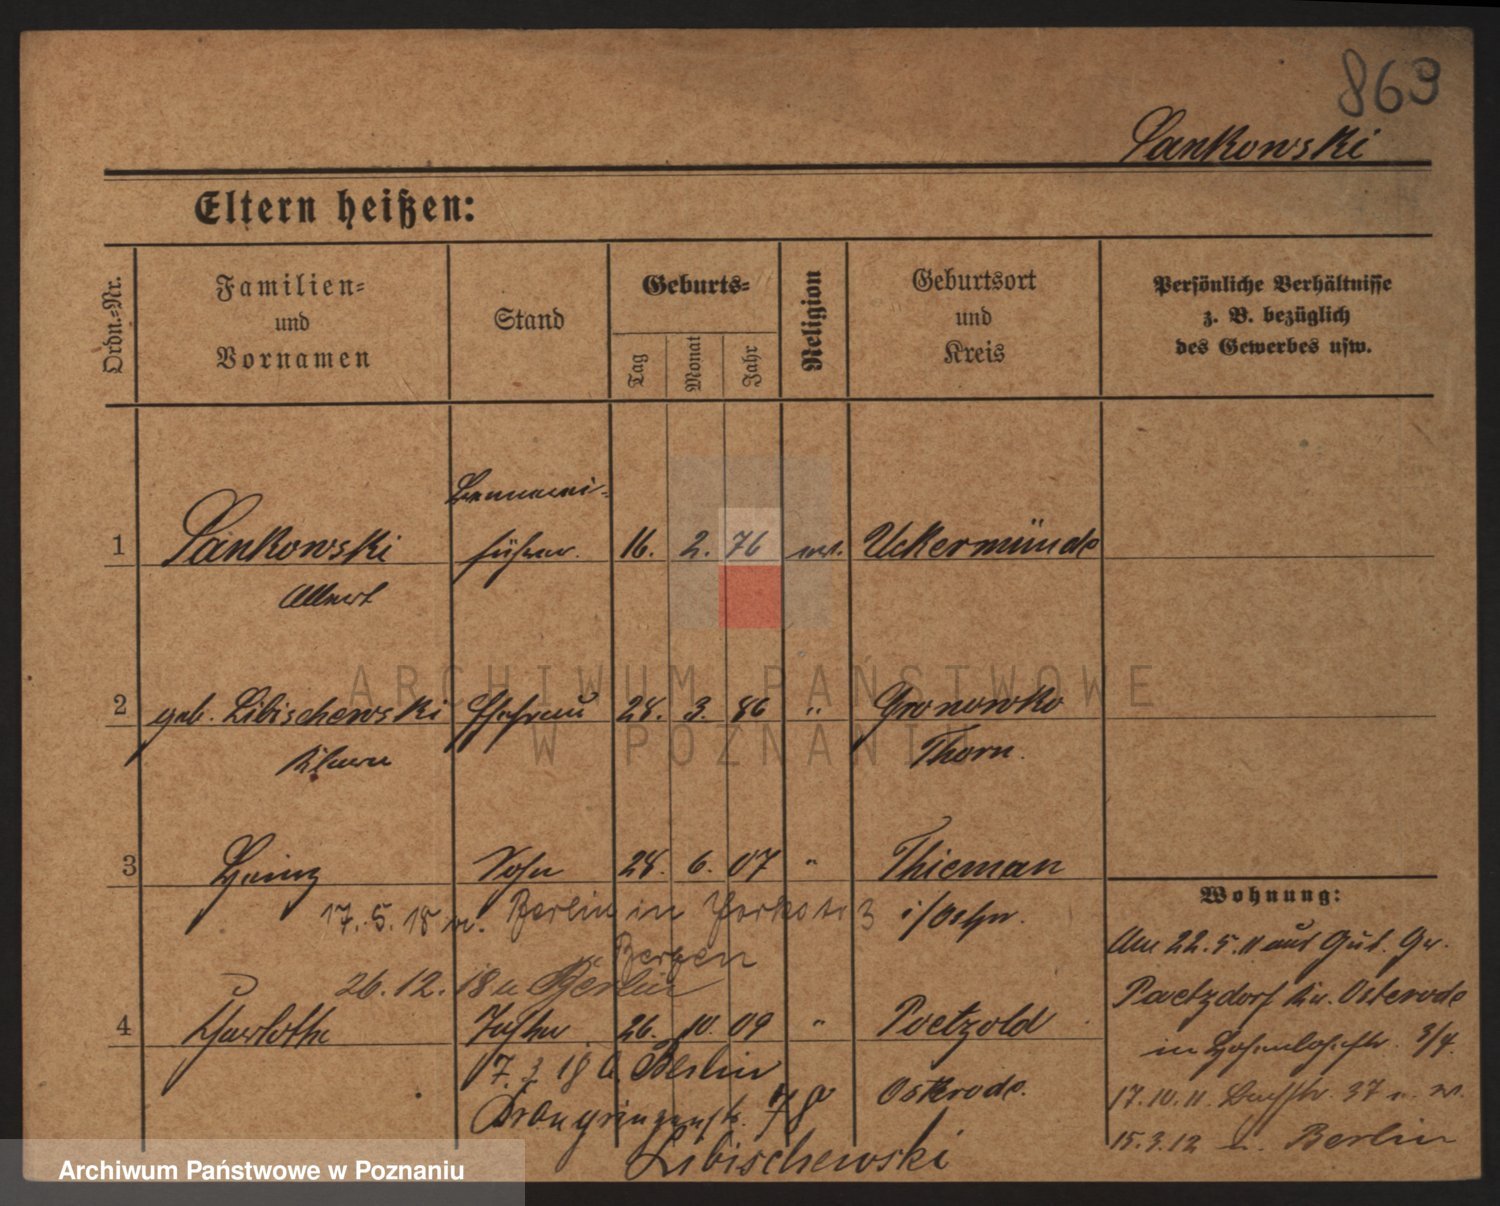 863
Sankowski
Eltern heißen:
Ordn.-Nr.
Familien-
und
Vornamen
Stand
Geburts-
Tag
Monat
Jahr
Religion
Geburtsort
und
Kreis
Persönliche Verhältnisse
z. B. bezüglich
des Gewerbes usw.
1 Sankowski führer. 16. 2. 76 Uckermünde
Albert
2 geb. Libischewski Ehefrau 28. 3. 86 " Gronowko
Klara Thorn.
3 Heinz Sohn 28. 6. 07 " Thieman
17. 5. 18 Berlin in Yorkstr 3 i/Ostpr.
Bergen
26. 12. 18 Berlin
4 Charlotte Tochter 26. 10. 09 " Poetzold
7. 3 18 Berlin Osterode.
78
Libischewski
Wohnung:
Am 22. 5. 11 aus Gut. Gr.
Paetzdorf Kr. Osterode
in Hohenlohestr. 3/4.
17. 10. 11. Bachstr. 37
15. 3. 12 Berlin
ARCHIWUM PAŃSTWOWE
W POZNANIU
Archiwum Państwowe w Poznaniu